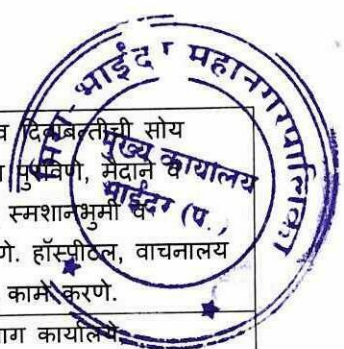 मिरा-भाईंदर महानगरपालिका
मुख्य कार्यालय
भाईंदर (प.)
व दिवाबत्तीची सोय
पुरविणे, मैदाने व
स्मशानभुमी व
णे. हॉस्पीटल, वाचनालय
कामे करणे.
ाग कार्यालये,